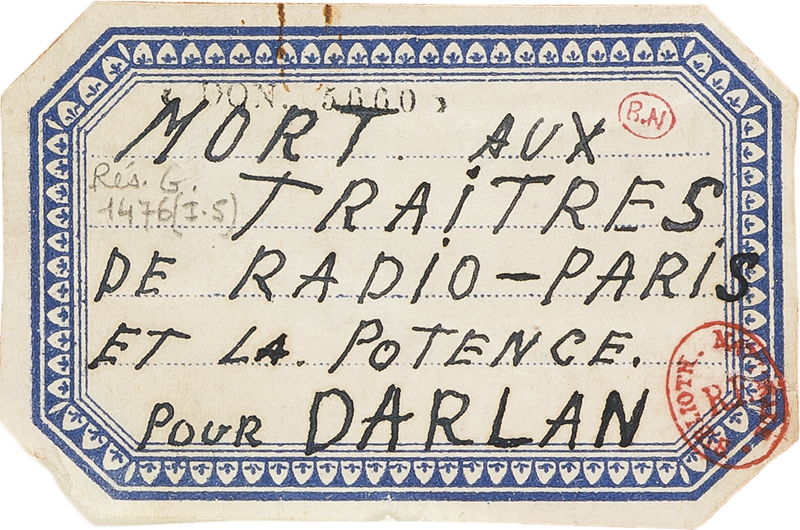 DON. 56660
MORT AUX
B.N
Rés. G.
1476(I-5)
TRAITRES
DE RADIO-PARIS
ET LA POTENCE.
POUR DARLAN
BIBLIOTH.